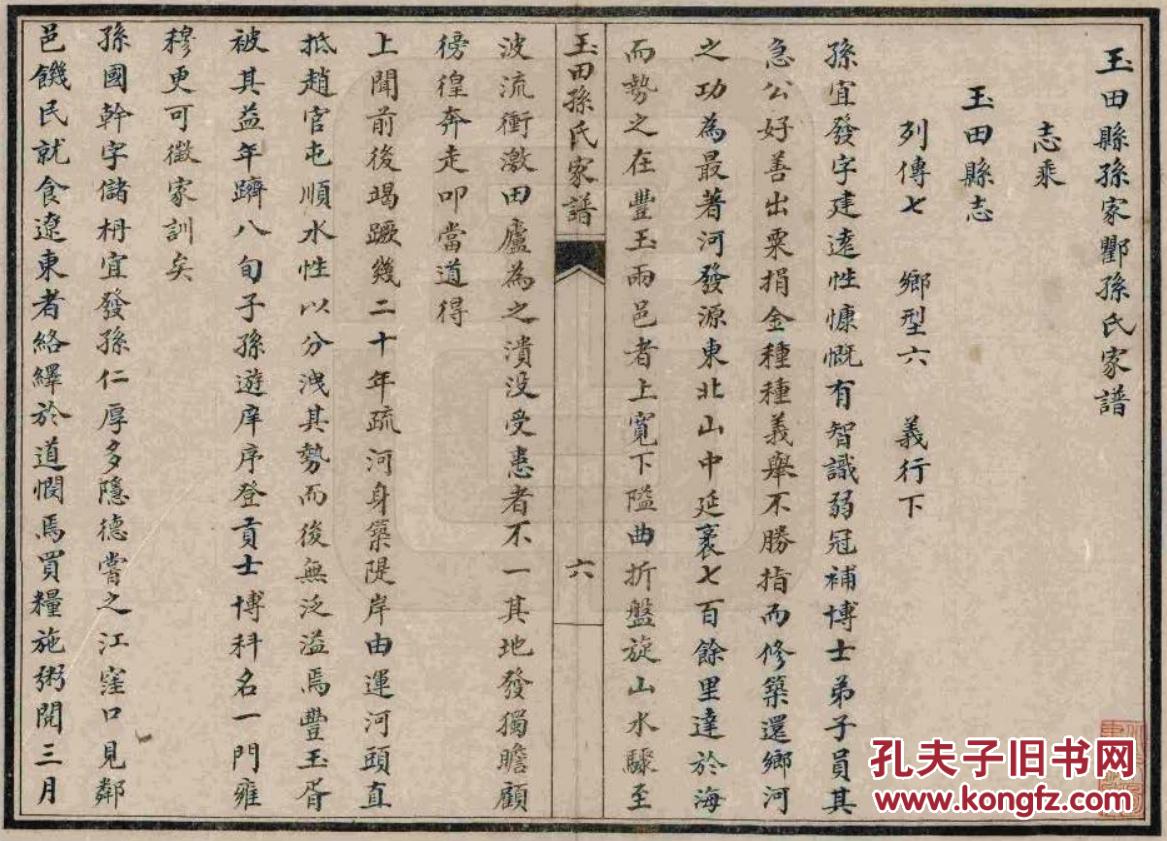 玉田縣孫家酆孫氏家譜
志乘
玉田縣志
列傳七 鄉型六 義行下
孫宜發字建遠性慷慨有智識弱冠補博士弟子員其
急公好善出粟捐金種種義舉不勝指而修築還鄉河
之功為最著河發源東北山中延袤七百餘里達於海
而勢之在豐玉兩邑者上寬下隘曲折盤旋山水驟至
玉田孫氏家譜
六
波流衝激田廬為之潰沒受患者不一其地發獨瞻顧
徬徨奔走叩當道得
上聞前後竭蹶幾二十年疏河身築隄岸由運河頭直
抵趙官屯順水性以分洩其勢而後無泛溢焉豐玉胥
被其益年躋八旬子孫遊庠序登貢士博科名一門雍
穆更可徵家訓矣
孫國幹字儲枏宜發孫仁厚多隱德嘗之江窪口見鄰
邑饑民就食遼東者絡繹於道憫焉買糧施粥閱三月
孔夫子旧书网
www.kongfz.com